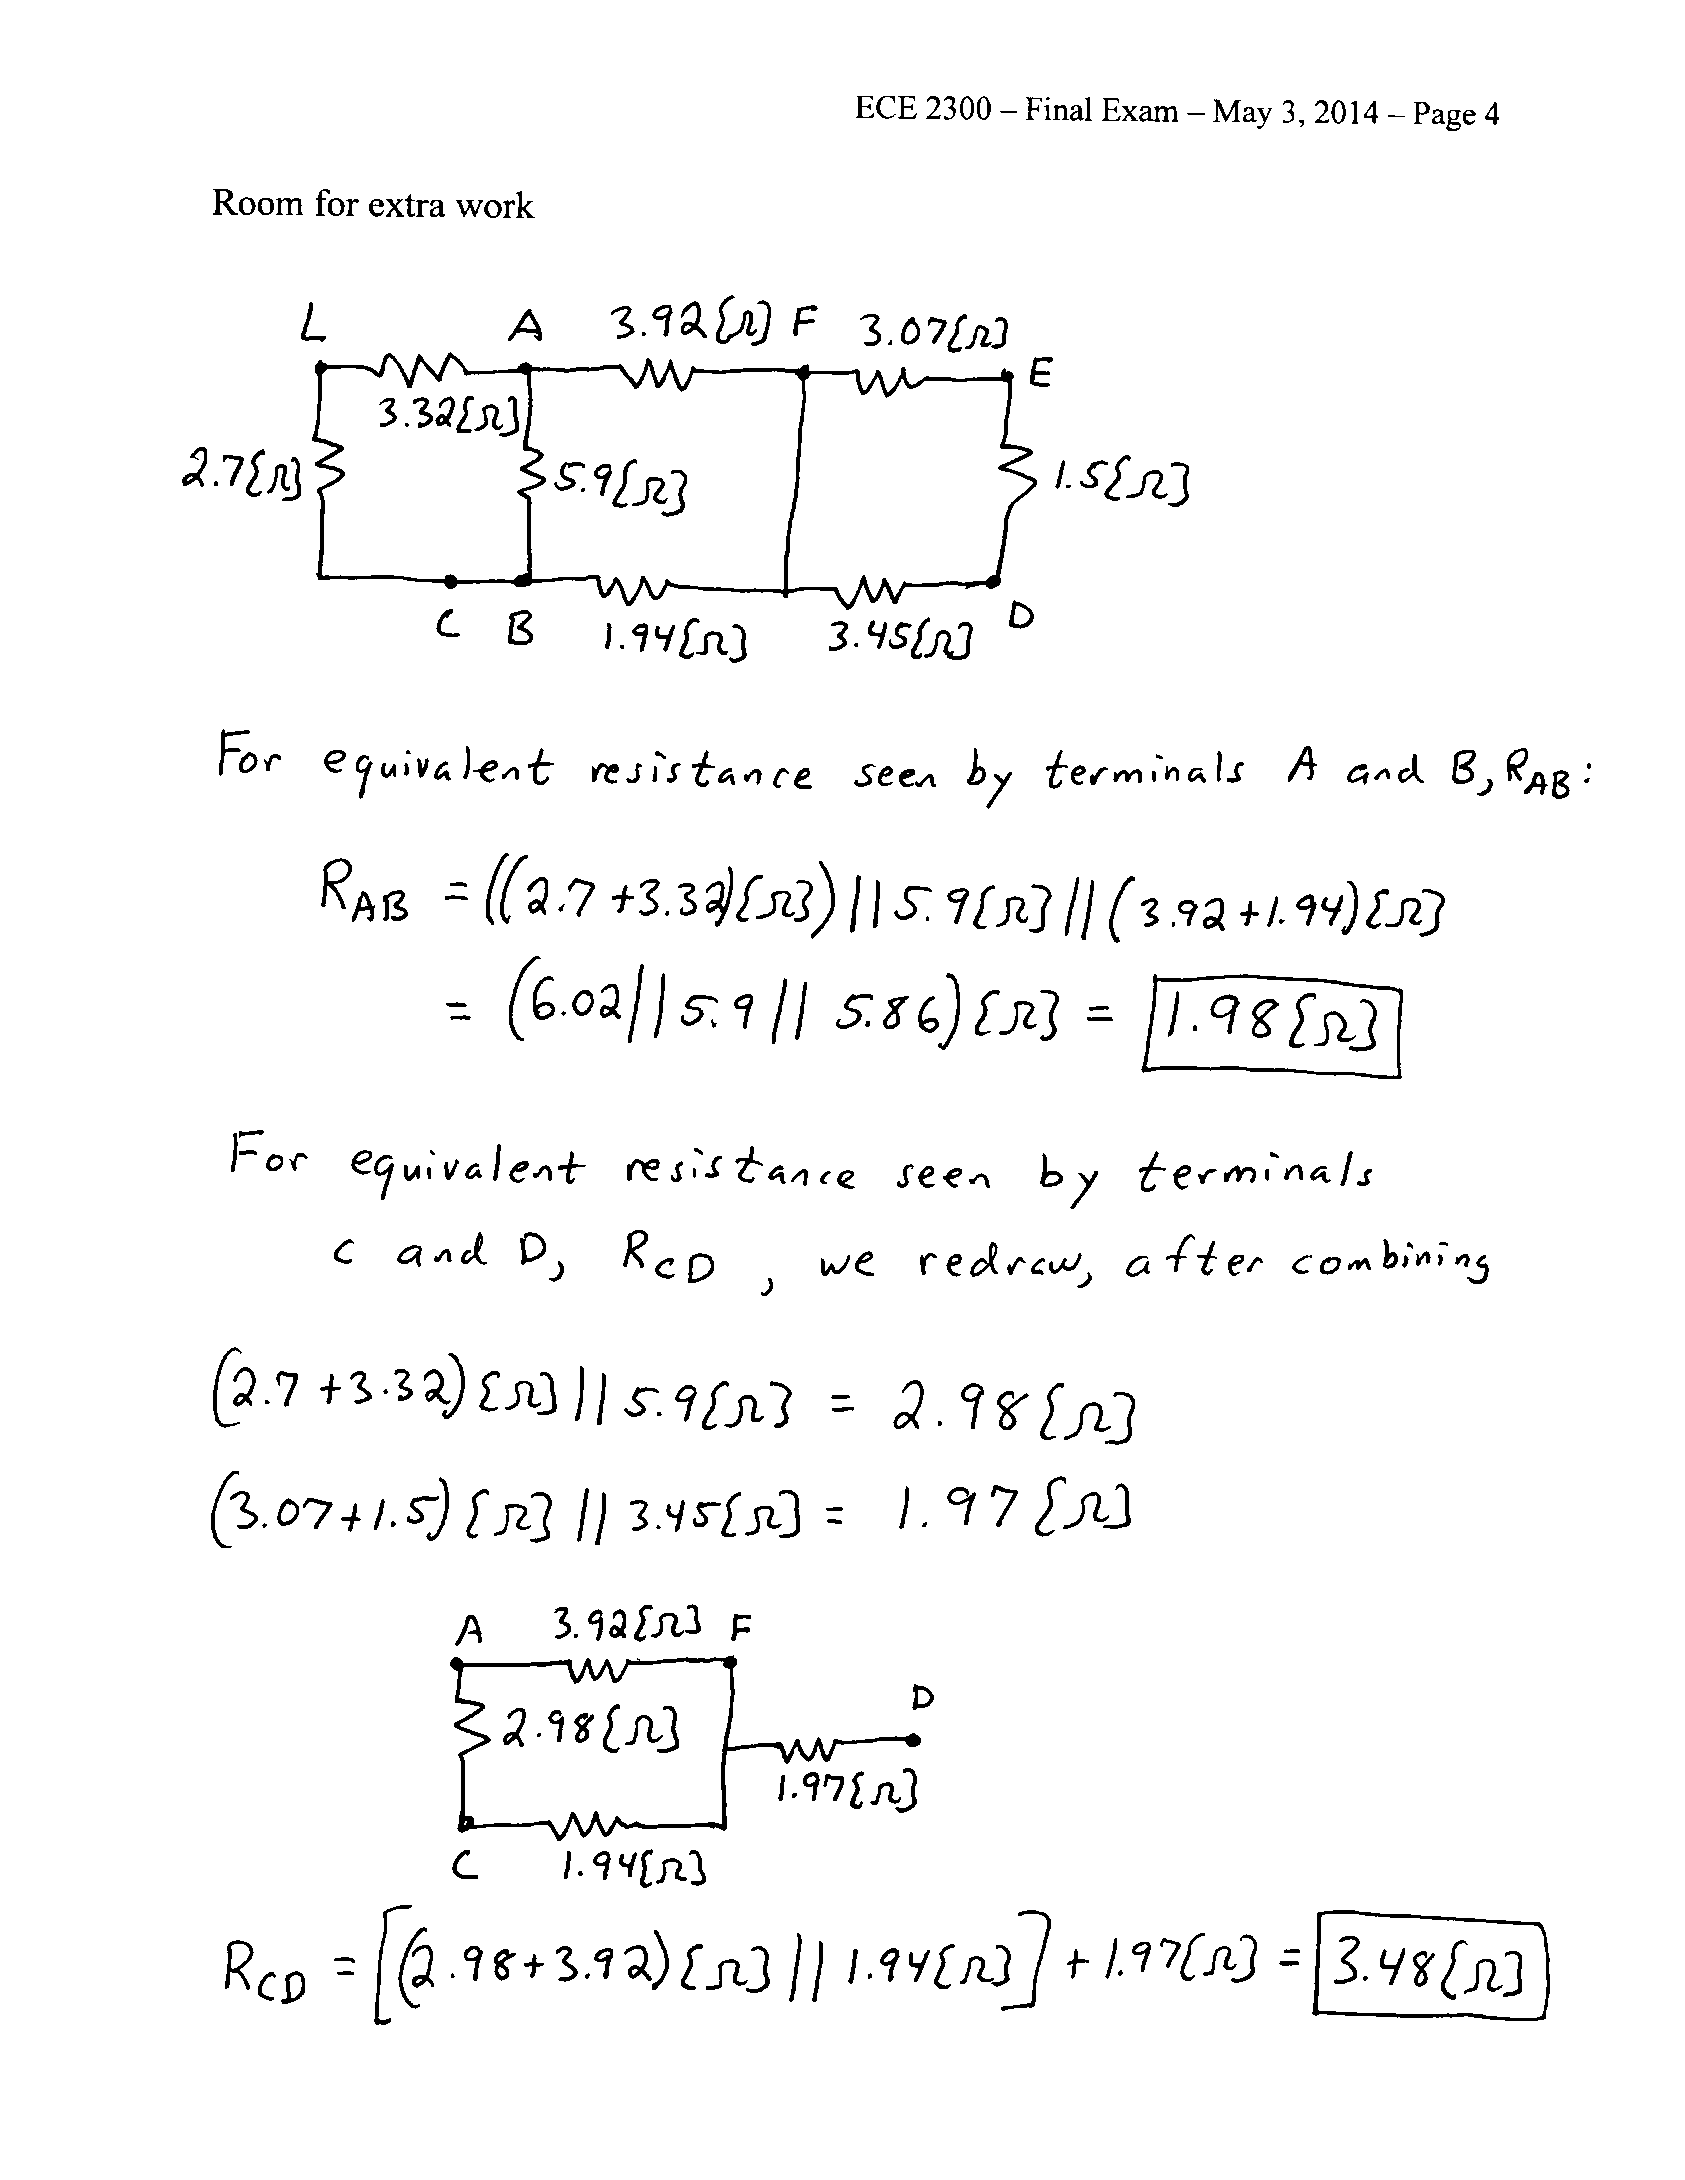 ECE 2300 – Final Exam – May 3, 2014 – Page 4
Room for extra work
L A 3.92{Ω} F 3.07{Ω}
E
3.32{Ω}
2.7{Ω} 5.9{Ω} 1.5{Ω}
C B 1.94{Ω} 3.45{Ω} D
For equivalent resistance seen by terminals A and B, RAB:
RAB = ((2.7+3.32){Ω})||5.9{Ω}||(3.92+1.94){Ω}
= (6.02||5.9||5.86){Ω} = 1.98{Ω}
For equivalent resistance seen by terminals
C and D, RCD, we redraw, after combining
(2.7+3.32){Ω}||5.9{Ω} = 2.98{Ω}
(3.07+1.5){Ω}||3.45{Ω} = 1.97{Ω}
A 3.92{Ω} F
D
2.98{Ω}
1.97{Ω}
C 1.94{Ω}
RCD = [(2.98+3.92){Ω}||1.94{Ω}]+1.97{Ω} = 3.48{Ω}